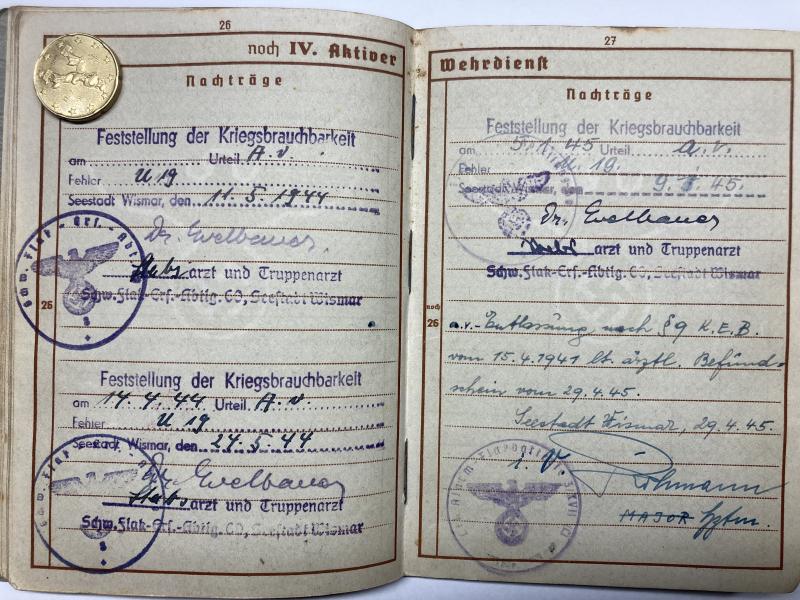 26
noch IV. Aktiver
Nachträge
Feststellung der Kriegsbrauchbarkeit
am Urteil A.v.
Fehler U 19
Seestadt Wismar, den 11.5.1944
Dr. Ewelbauer
Stabsarzt und Truppenarzt
Schw. Flak-Ers.-Abtlg. 60, Seestadt Wismar
26
Feststellung der Kriegsbrauchbarkeit
am 14.4.44 Urteil A.v.
Fehler U 19
Seestadt Wismar, den 24.5.44
Dr. Ewelbauer
Stabsarzt und Truppenarzt
Schw. Flak-Ers.-Abtlg. 60, Seestadt Wismar
27
Wehrdienst
Nachträge
Feststellung der Kriegsbrauchbarkeit
am 5.1.45 Urteil a.v.
Fehler U. 19.
Seestadt Wismar, den 9.1.45.
Dr. Ewelbauer
Stabsarzt und Truppenarzt
Schw. Flak-Ers.-Abtlg. 60, Seestadt Wismar
noch
26
a.v.-Entlassung nach § 9 K.E.B.
vom 15.4.1941 lt. ärztl. Befund-
schein vom 29.4.45.
Seestadt Wismar, 29.4.45.
i.V.
MAJOR Hptm.